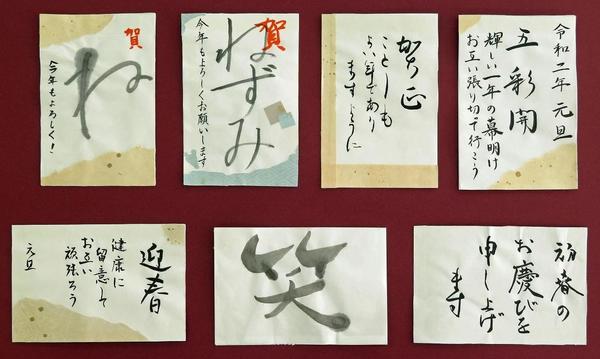 賀
ね
今年もよろしく！
賀
ねずみ
今年もよろしくお願いします
賀正
ことしも
よい年であり
ますように
令和二年 元旦
五彩開
輝しい一年の幕明け
お互い張り切って行こう
迎春
健康に
留意して
お互い
頑張ろう
元旦
笑
初春の
お慶びを
申し上げ
ます